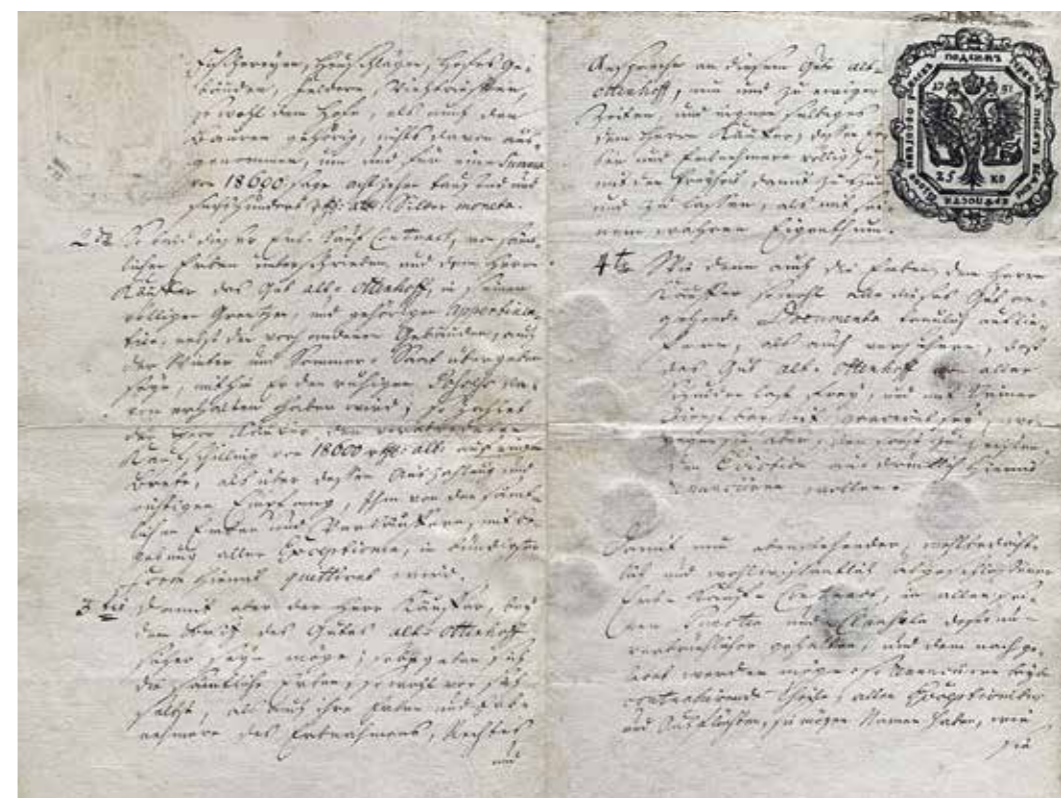 Fischereyen, Heuschlägen, Hofes Ge-
bäuden, Feldern, Viehtrifften,
so wohl dem Hofe, als auch den
Bauren gehörig, nichts davon aus-
genommen, um und für eine Summa
von 18600 sage achtzehen tausend und
sechshundert alb: Silber moneta.
2 So bald dieser Erb- Kauf Contract, von sämt-
lichen Erben unterschrieben und dem Herrn
Käuffer das Guth alt- Ottenhoff, in seinen
völligen Grentzen, und gehörigen Appertinen-
tien, nebst den vorhandenen Gebäuden, auch
der Winter und Sommer- Saat übergeben
seyn, mithin er den ruhigen Besitz da-
von erhalten haben wird; so zahlet
der Herr Käuffer den verabredeten
Kaufschilling von 18600 alb: auf einem
Brete, als über dessen Auszahlung und
richtigen Empfang, Ihm von den sämt-
lichen Erben und Verkäuffern, mit be-
gebung aller Exceptionen, in bündigster
Form hiemit quittiret wird.
3 Damit aber der Herr Käuffer, bey
dem Besitz des Gutes alt- Ottenhoff
sicher seyn möge; so begeben sich
die sämtliche Erben, so wohl vor sich
selbst, als auch ihre Erben und Erb-
nehmere des Erbnahmens, Rechtes
und
Ansprache an diesem Guth alt-
Ottenhoff, nun und zu ewigen
Zeiten und eignen selbiges
dem Herrn Käuffer, dessen Er-
ben und Erbnehmern völlig zu,
mit der Freyheit, damit zu thun
und zu lassen, als mit sei-
nem wahren Eigenthum.
4 Wie denn auch die Erben, dem Herrn
Käuffer sowohl alle dieses Gut an-
gehende Documenta treulich auslie-
fern, als auch versichern, daß
das Gut alt- Ottenhoff von aller
Schulden Last frey, und mit keiner
sey,
gegen sie aber, den zu leisten-
den Eviction ausdrücklich hiemit
wollen.
Damit nun obenstehender, wohlbedächt-
lich und wohlwissentlich abgeschlossener
Erb- Kauf- Contract, in allen sei-
nen Puncten und Clauseln desto un-
verbrüchlicher gehalten, und dem nachge-
lebet werden möge; so renunciiren beyde
contrahirende Theile, allen Exceptionibus
und Ausflüchten, sie mögen Namen haben, wie
sie
17 51
25 КО